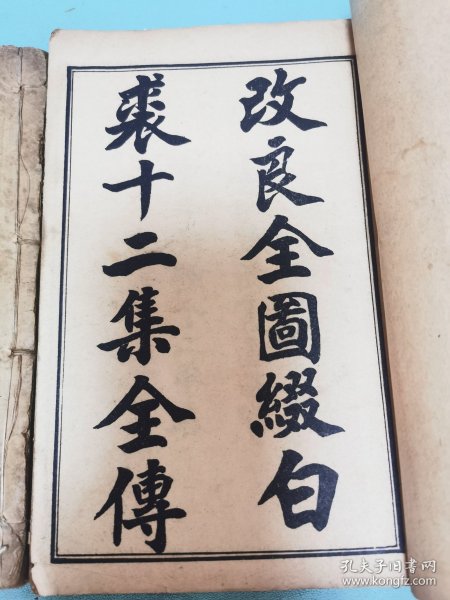 改良全圖綴白
裘十二集全傳
孔夫子旧书网
www.kongfz.com